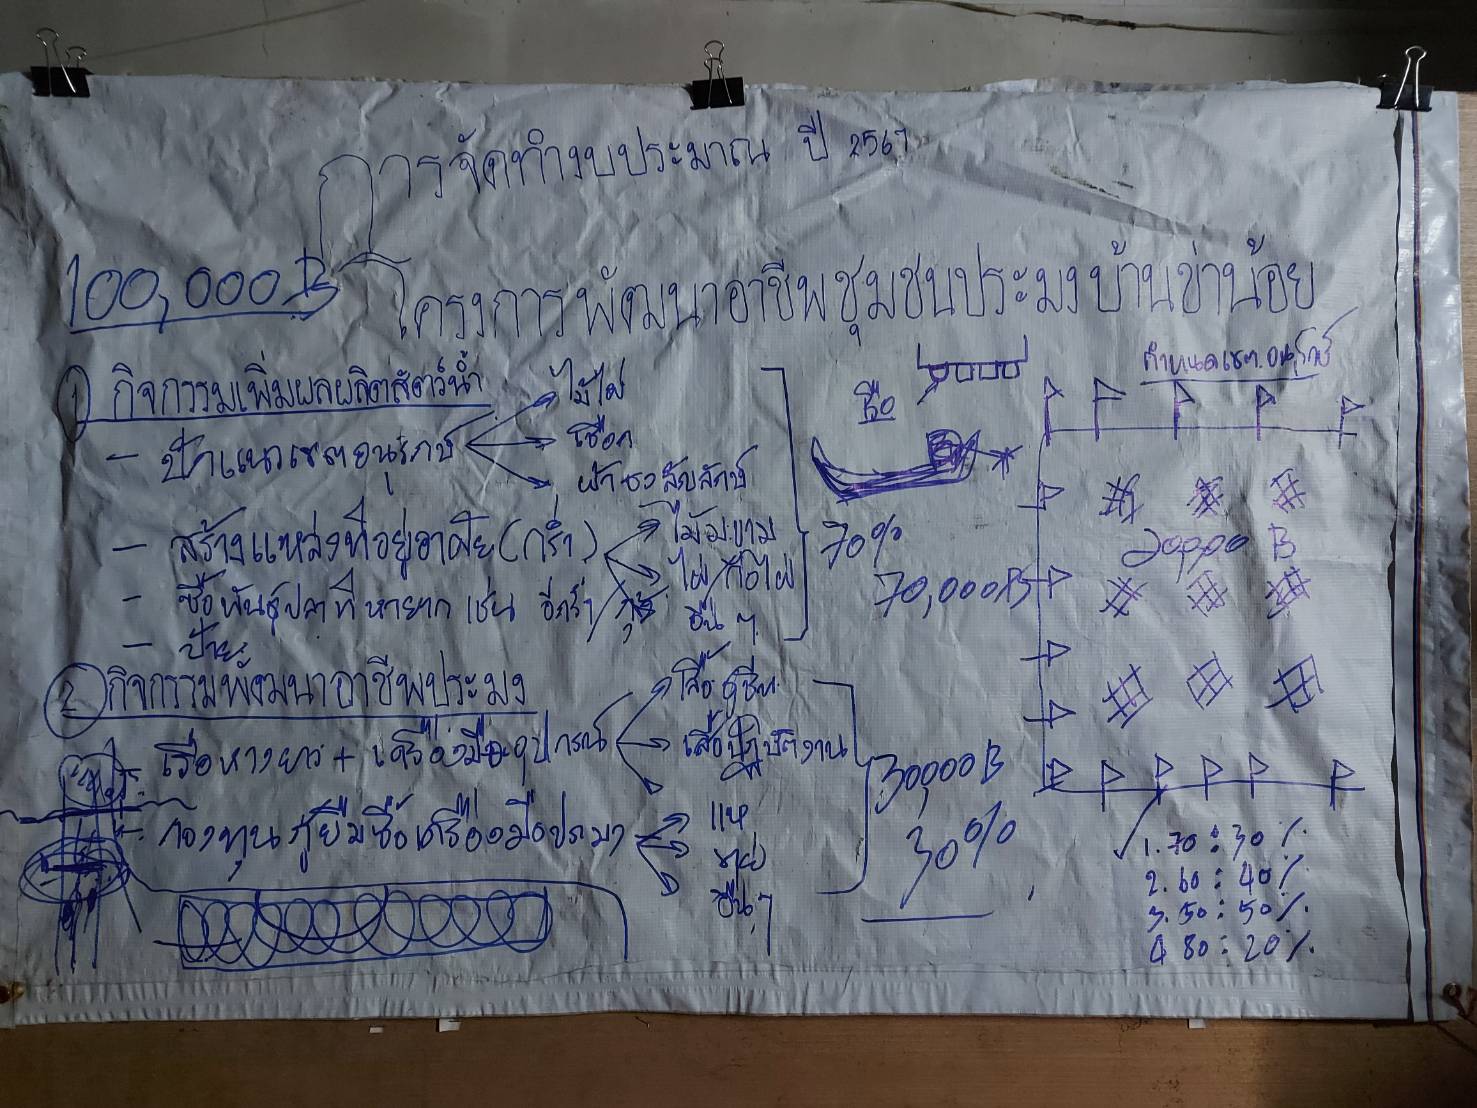 การจัดทำงบประมาณ ปี 2567
100,000 B
โครงการพัฒนาอาชีพชุมชนประมงบ้านข่าน้อย
① กิจกรรมเพิ่มผลผลิตสัตว์น้ำ
- ปักแนวเขตอนุรักษ์
ไม้ไผ่
เชือก
ผ้าธงสัญลักษ์
- สร้างแหล่งที่อยู่อาศัย (กร่ำ)
ไม้มะขาม
ไผ่/กอไผ่
อื่น ๆ
- ซื้อพันธุ์ปลาที่หายาก เช่น
- ป้าย
70%
70,000B
② กิจกรรมพัฒนาอาชีพประมง
- เรือหางยาว + เครื่องมืออุปกรณ์
เสื้อชูชีพ
เสื้อปฏิบัติงาน
- กองทุนกู้ยืมซื้อเครื่องมือประมง
แห
ข่าย
อื่น ๆ
30,000B
30%
กำหนดเขตอนุรักษ์
20,000 B
1. 70 : 30 %
2. 60 : 40 %
3. 50 : 50 %
4 80 : 20 %